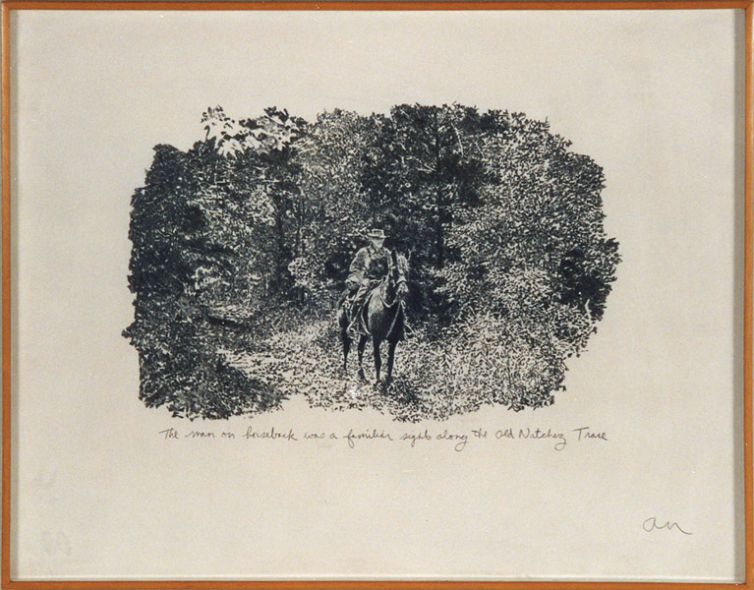 The man on horseback was a familiar sight along the Old Natchez Trace
an